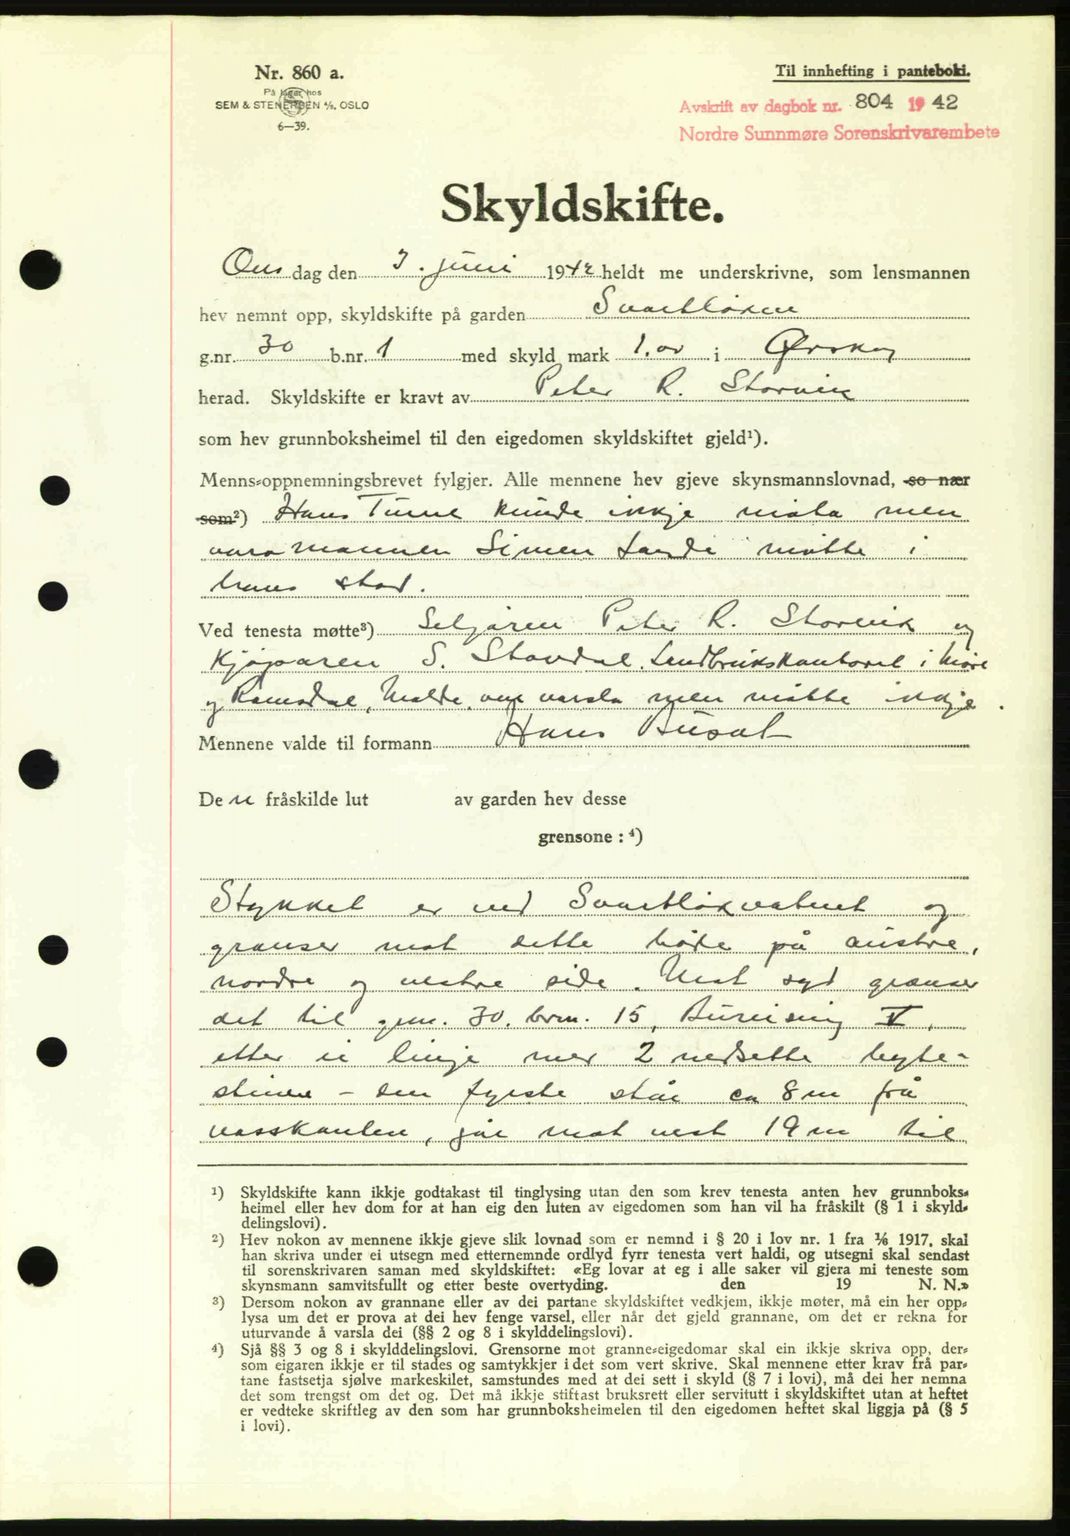 Nr. 860 a.
På lager hos
SEM & STENERSEN A/S, OSLO
6—39.
Til innhefting i panteboki.
Avskrift av dagbok nr. 804 1942
Nordre Sunnmøre Sorenskrivarembete
Skyldskifte.
Ons dag den 3. juni 1942 heldt me underskrivne, som lensmannen
hev nemnt opp, skyldskifte på garden Svartløken
g.nr. 30 b.nr. 1 med skyld mark 1.00 i Ørskog
herad. Skyldskifte er kravt av Peter R. Storvik
som hev grunnboksheimel til den eigedomen skyldskiftet gjeld¹).
Menns-oppnemningsbrevet fylgjer. Alle mennene hev gjeve skynsmannslovnad, so nær
som²) Hans Tunne kunde ikkje møta men
varamannen Simen Lande møtte i
hans stad.
Ved tenesta møtte³) Seljaren Peter R. Storvik og
Kjøparen S. Stavdal, Landbrukskontoret i Møre
og Romsdal, Molde, var varsla men møtte ikkje.
Mennene valde til formann Hans Busat
De n fråskilde lut av garden hev desse
grensone : ⁴)
Stykket er ved Svartløkvatnet og
grenser mot dette både på austre,
nordre og vestre side. Mot syd grenser
det til gnr. 30, brn. 15, Bureising V,
etter ei linje med 2 nedsette byte-
steinar – den fyrste står ca 8 m frå
vasskanten, går mot vest 19 m til
¹) Skyldskifte kann ikkje godtakast til tinglysing utan den som krev tenesta anten hev grunnboks-
heimel eller hev dom for at han eig den luten av eigedomen som han vil ha fråskilt (§ 1 i skyld-
delingslovi).
²) Hev nokon av mennene ikkje gjeve slik lovnad som er nemnd i § 20 i lov nr. 1 fra ⅙ 1917, skal
han skriva under ei utsegn med etternemnde ordlyd fyrr tenesta vert haldi, og utsegni skal sendast
til sorenskrivaren saman med skyldskiftet: «Eg lovar at eg i alle saker vil gjera mi teneste som
skynsmann samvitsfullt og etter beste overtyding. den 19 N. N.»
³) Dersom nokon av grannane eller av dei partane skyldskiftet vedkjem, ikkje møter, må ein her opp-
lysa um det er prova at dei hev fenge varsel, eller når det gjeld grannane, om det er rekna for
uturvande å varsla dei (§§ 2 og 8 i skylddelingslovi).
⁴) Sjå §§ 3 og 8 i skylddelingslovi. Grensorne mot granne-eigedomar skal ein ikkje skriva opp, der-
som eigaren ikkje er til stades og samtykkjer i det som vert skrive. Skal mennene etter krav frå par-
tane fastsetja sjølve markeskilet, samstundes med at dei sett i skyld (§ 7 i lovi), må dei her nemna
det som trengst om det og. Det må ikkje stiftast bruksrett eller servitutt i skyldskiftet utan at heftet
er vedteke skriftleg av den som har grunnboksheimelen til den eigedomen heftet skal liggja på (§ 5
i lovi).